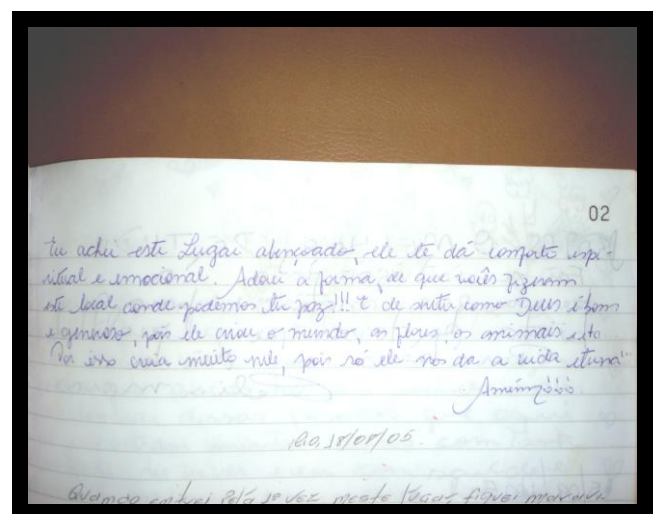 02
Eu achei este Lugar abençoado, ele te dá conforto espi-
ritual e emocional. Adorei a forma, de que vocês fizeram
este local aonde podemos ter paz!!! E de sentir como Deus é bom
e generoso, pois ele criou o mundo, as flores, os animais etc
Por isso creia muito nele, pois só ele nos da a vida eterna!
Amém
Rio, 18/08/05.
Quando entrei pela 1ª vez neste lugar fiquei